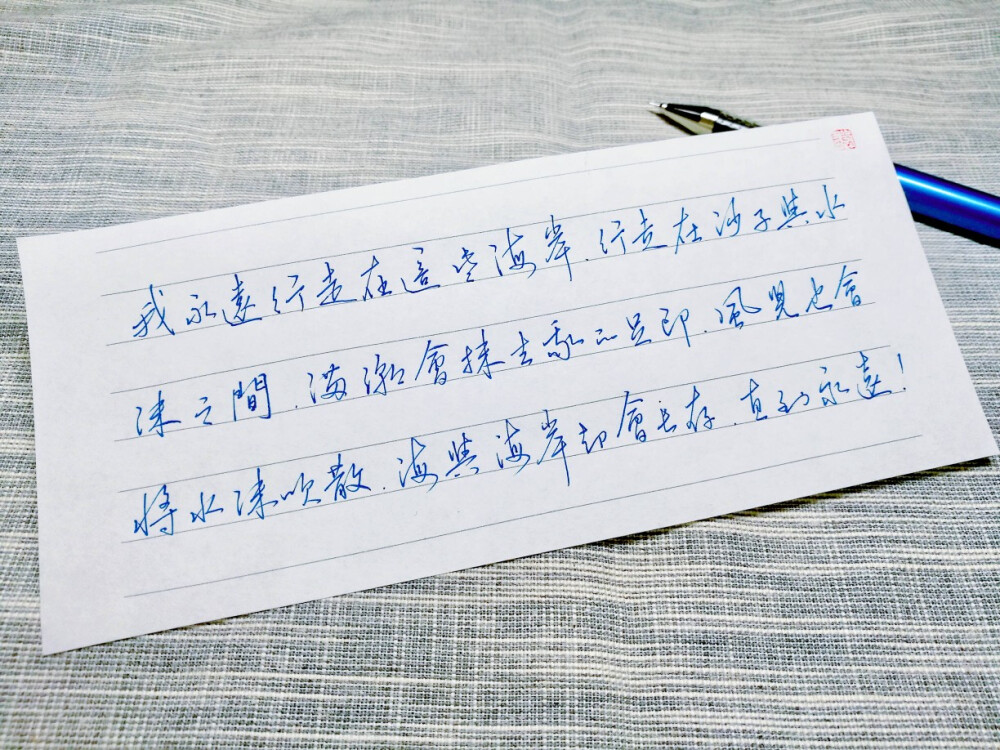 我永遠行走在這些海岸.行走在沙子與水
沫之間.滿潮會抹去我的足印.風兒也會
將水沫吹散.海與海岸卻會長存.直到永遠!